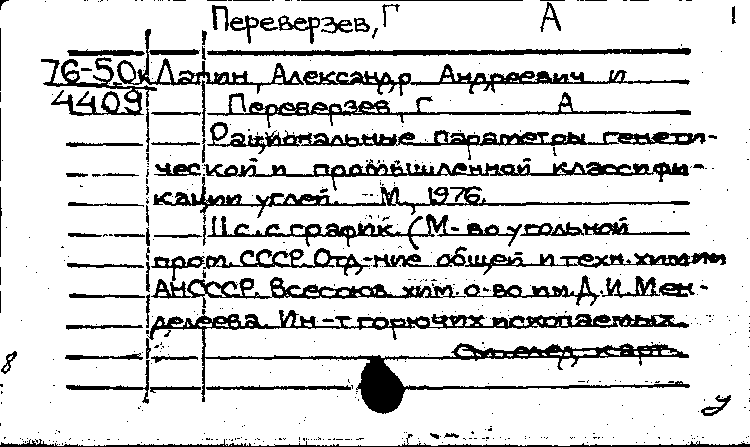 Переверзев, Г А 1
76-50к Лапин, Александр Андреевич и
4409 Переверзев, Г А
Рациональные параметры генети-
ческой и промышленной классифи-
кации углей. М, 1976.
11 с. с график. (М-во угольной
пром. СССР. Отд-ние общей и техн. химии
АНСССР. Всесоюз. хим. о-во им. Д. И. Мен-
делеева. Ин-т горючих ископаемых.
См. след. карт.
8
у